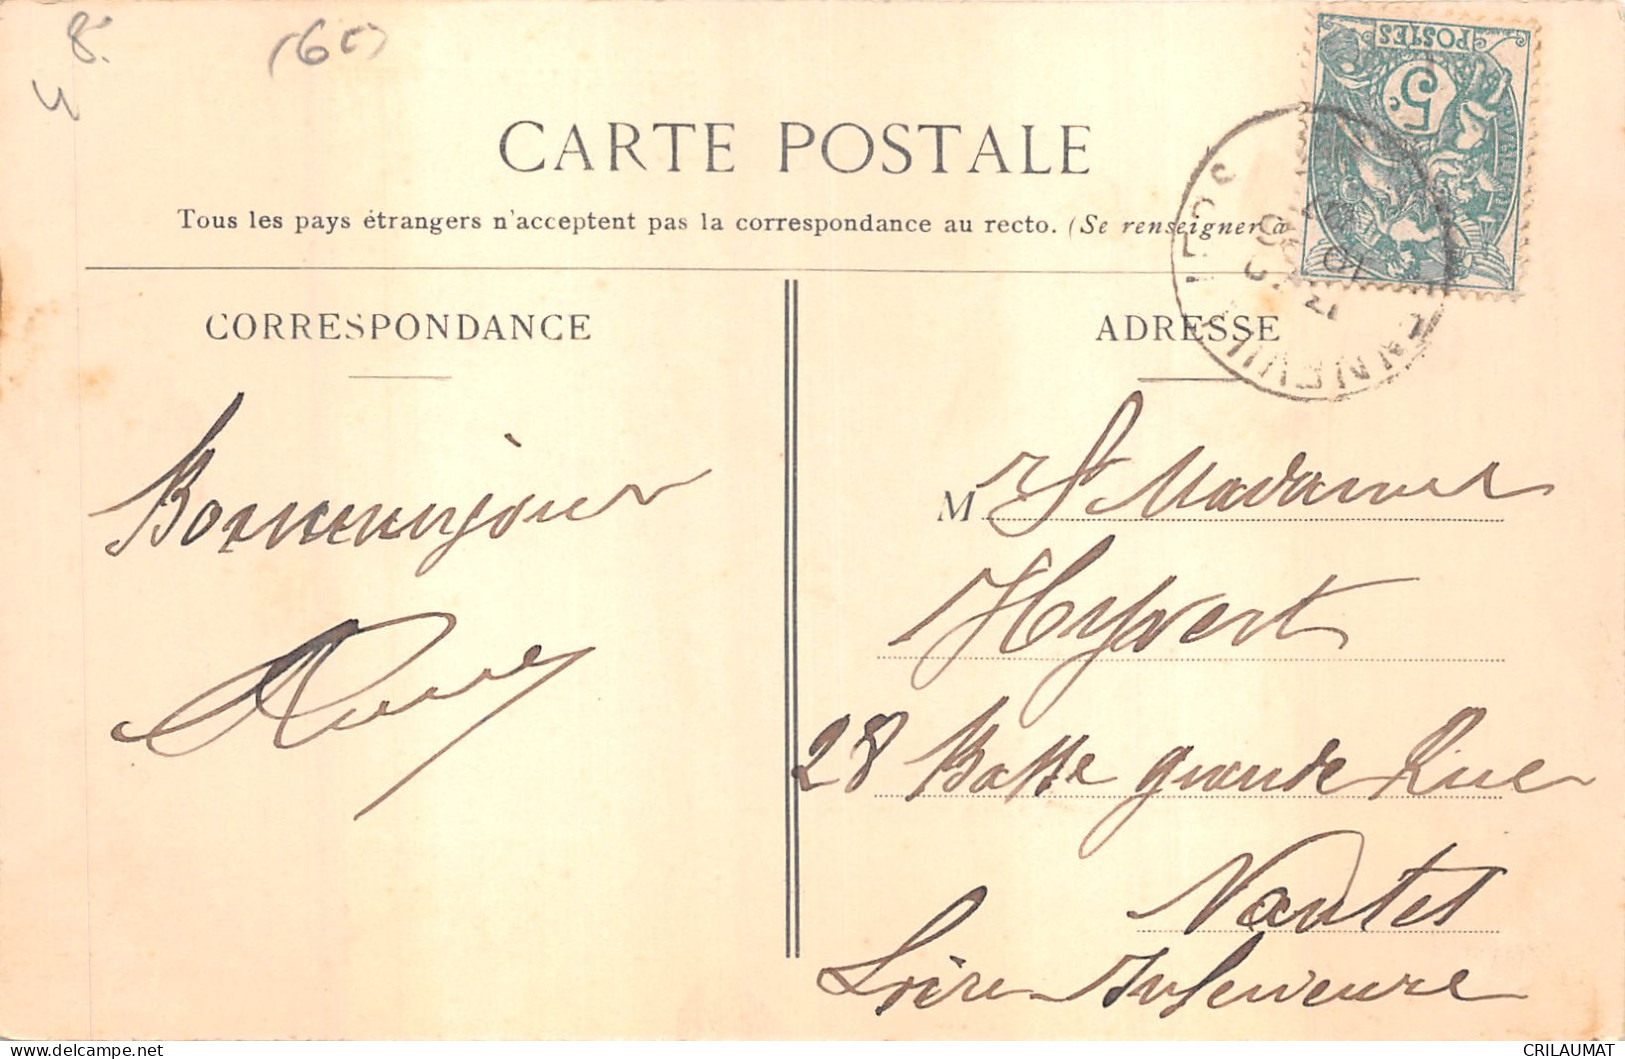 8.
4
CARTE POSTALE
Tous les pays étrangers n'acceptent pas la correspondance au recto. (Se renseigner à
POSTES
5c
CORRESPONDANCE
ADRESSE
Bonjour
M
Madame
Hyvert
28 Basse grande Rue
Nantes
Loire Inferieure
delcampe.net
CRILAUMAT